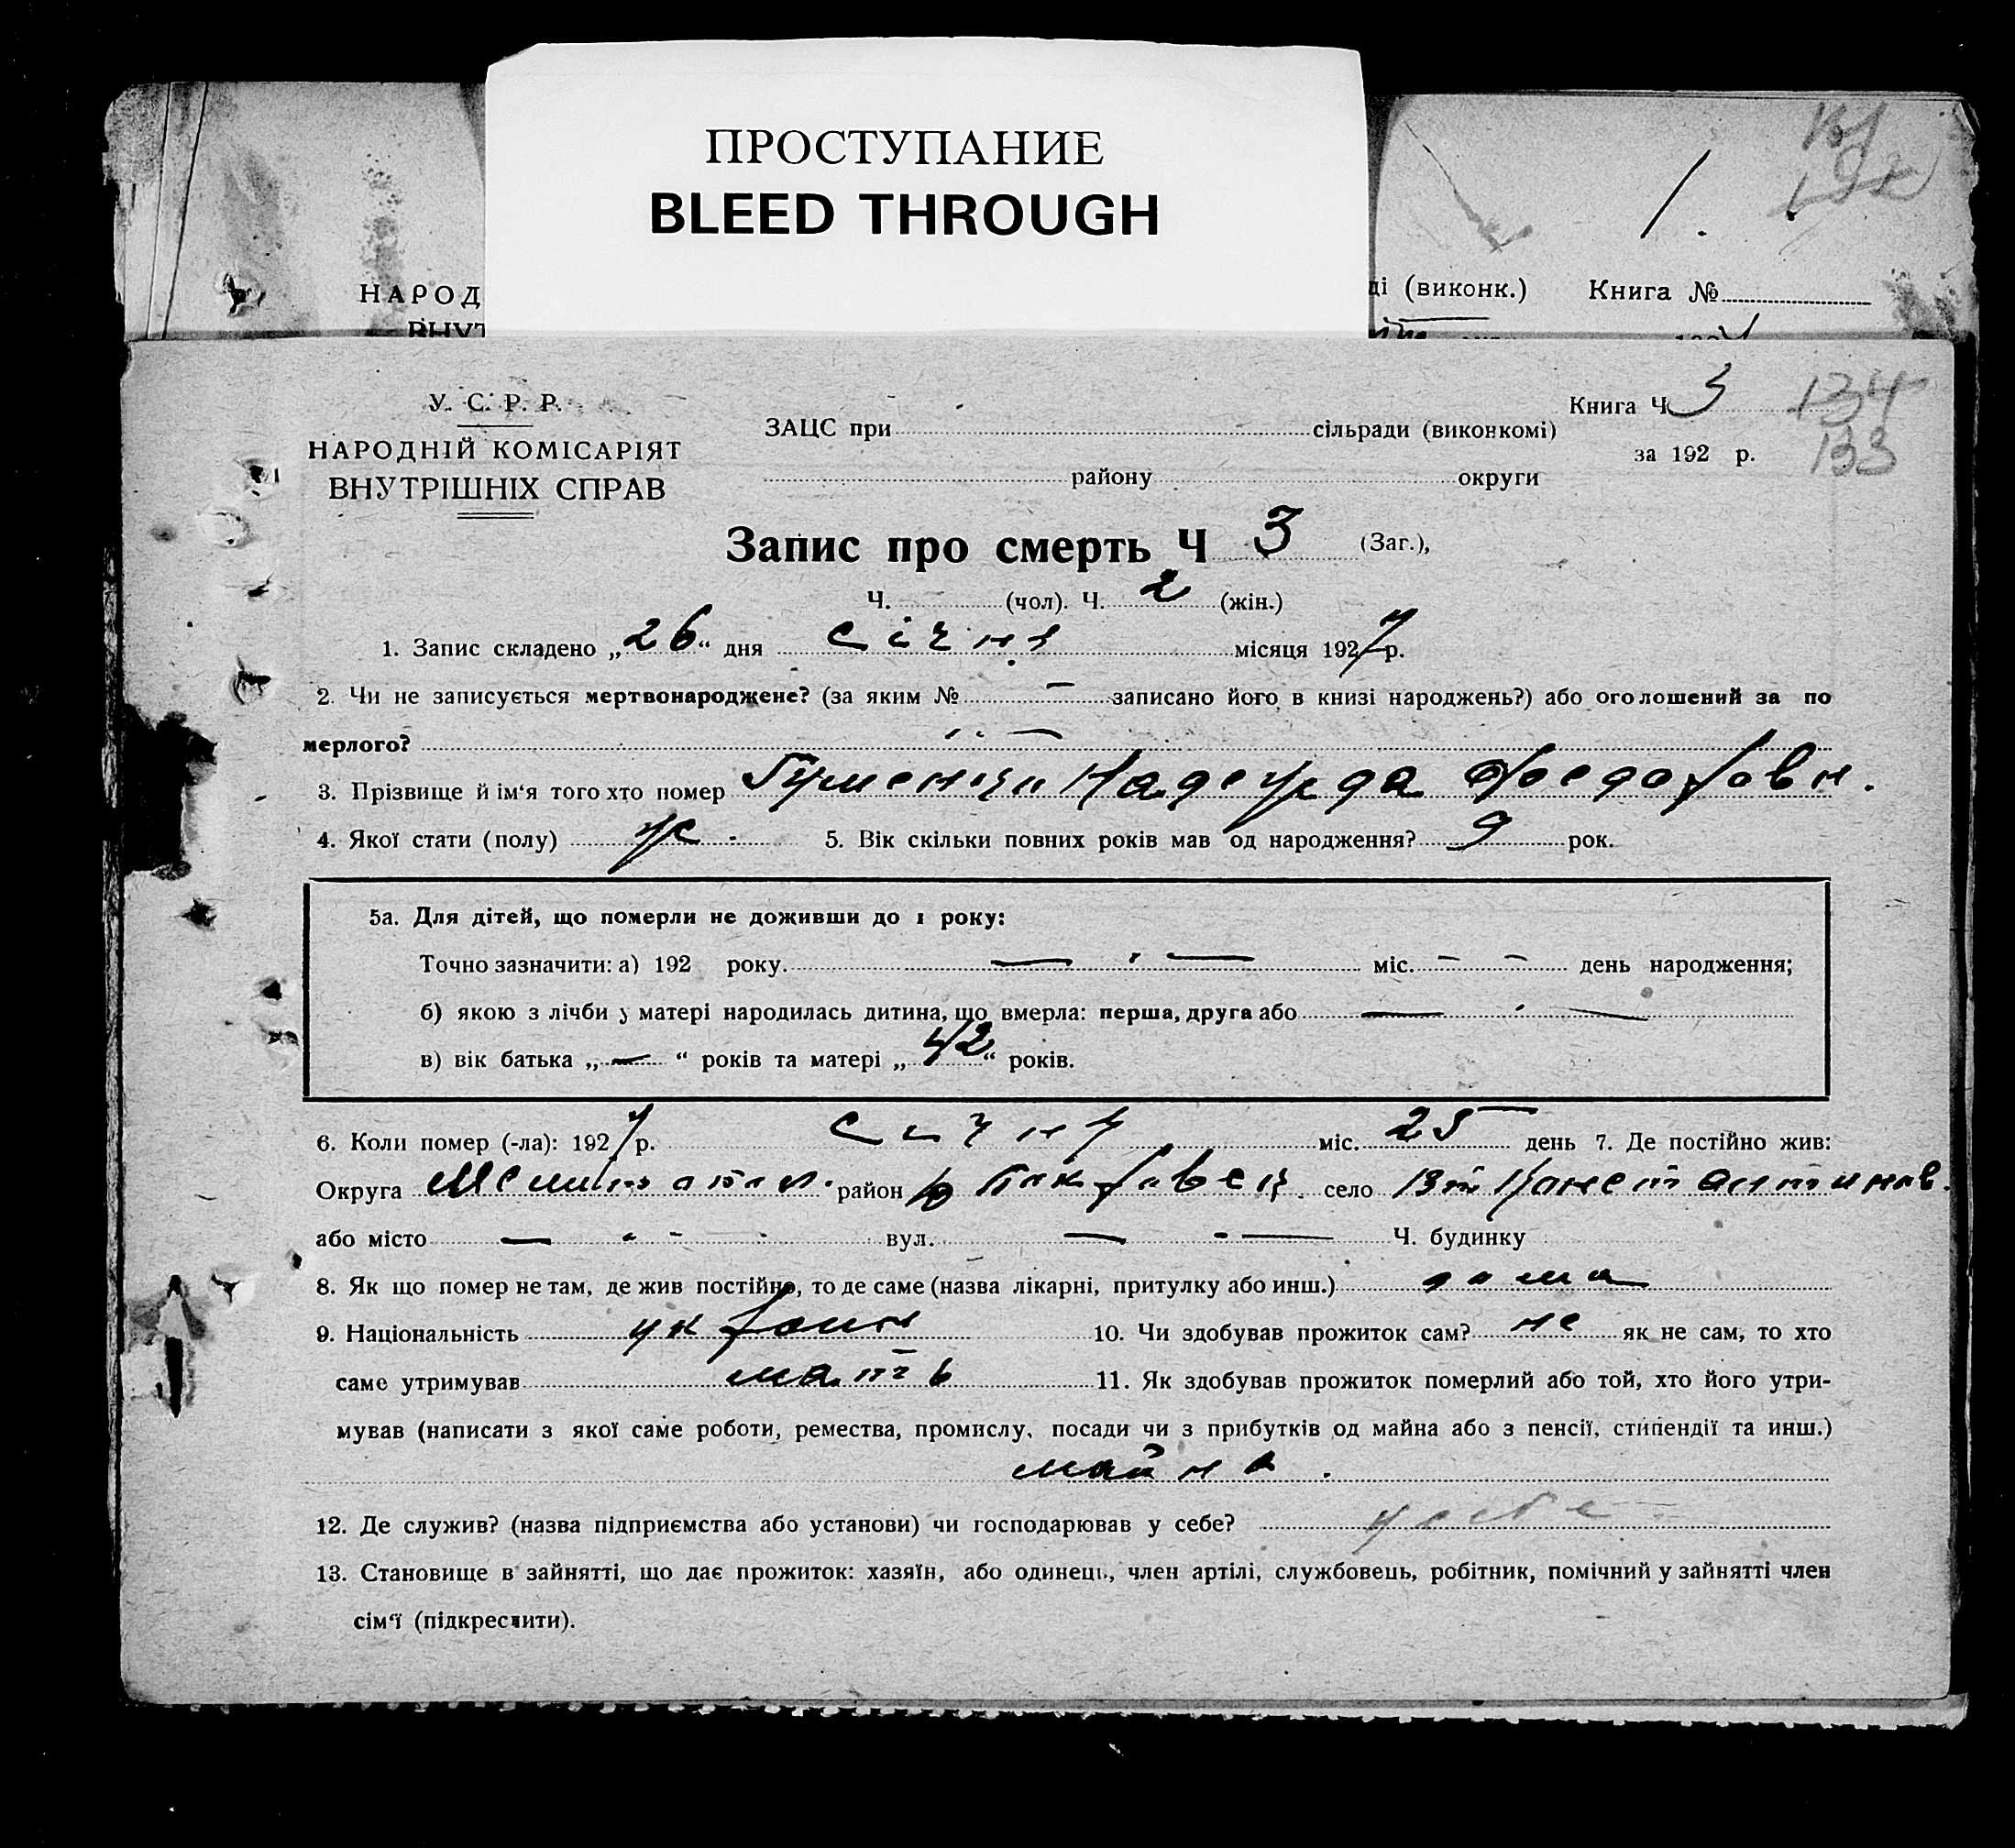 ПРОСТУПАНИЕ
BLEED THROUGH
1.
НАРОД
ді (виконк.) Книга №
У. С. Р. Р.
НАРОДНІЙ КОМІСАРІЯТ
ВНУТРІШНІХ СПРАВ
ЗАЦС при сільради (виконкомі)
району округи
Книга Ч 3
за 192 р.
134
133
Запис про смерть Ч 3 (Заг.),
Ч. (чол). Ч. 2 (жін.)
1. Запис складено „26“ дня січня місяця 1927 р.
2. Чи не записується мертвонароджене? (за яким № — записано його в книзі народжень?) або оголошений за по
мерлого?
3. Прізвище й ім‘я того хто помер Надежда Федоровн.
4. Якої стати (полу) ж. 5. Вік скільки повних років мав од народження? 9 рок.
5а. Для дітей, що померли не доживши до 1 року:
Точно зазначити: а) 192 року. міс. день народження;
б) якою з лічби у матері народилась дитина, що вмерла: перша, друга або
в) вік батька „—“ років та матері „42“ років.
6. Коли помер (-ла): 1927 р. Січня міс. 25 день 7. Де постійно жив:
Округа район село Константинов.
або місто вул. Ч. будинку
8. Як що помер не там, де жив постійно, то де саме (назва лікарні, притулку або инш.) дома
9. Національність 10. Чи здобував прожиток сам? не як не сам, то хто
саме утримував мать 11. Як здобував прожиток померлий або той, хто його утри-
мував (написати з якої саме роботи, ремества, промислу, посади чи з прибутків од майна або з пенсії, стипендії та инш.)
майна.
12. Де служив? (назва підприємства або установи) чи господарював у себе? у себе
13. Становище в зайнятті, що дає прожиток: хазяїн, або одинець, член артілі, службовець, робітник, помічний у зайнятті член
сім‘ї (підкреслити).